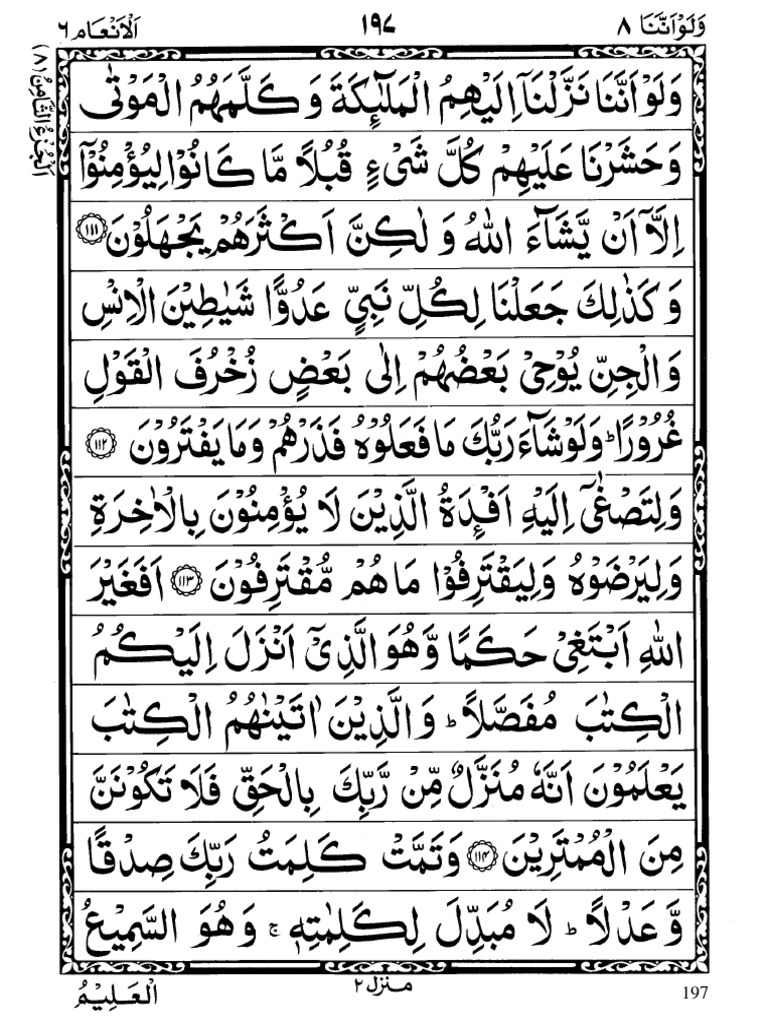 وَلَوْاَنَّنَا ٨
١٩٧
اَلْاَنْعَام ٦
اَلْجُزْءُ الثَّامِنُ (٨)
وَلَوْ اَنَّنَا نَزَّلْنَاۤ اِلَيْهِمُ الْمَلٰٓئِكَةَ وَ كَلَّمَهُمُ الْمَوْتٰى
وَ حَشَرْنَا عَلَيْهِمْ كُلَّ شَيْءٍ قُبُلًا مَّا كَانُوْا لِيُؤْمِنُوْۤا
اِلَّاۤ اَنْ يَّشَآءَ اللّٰهُ وَ لٰكِنَّ اَكْثَرَهُمْ يَجْهَلُوْنَ ﴿١١١﴾
وَ كَذٰلِكَ جَعَلْنَا لِكُلِّ نَبِيٍّ عَدُوًّا شَيٰطِيْنَ الْاِنْسِ
وَ الْجِنِّ يُوْحِيْ بَعْضُهُمْ اِلٰى بَعْضٍ زُخْرُفَ الْقَوْلِ
غُرُوْرًا ؕ وَ لَوْ شَآءَ رَبُّكَ مَا فَعَلُوْهُ فَذَرْهُمْ وَ مَا يَفْتَرُوْنَ ﴿١١٢﴾
وَ لِتَصْغٰۤى اِلَيْهِ اَفْـِٕدَةُ الَّذِيْنَ لَا يُؤْمِنُوْنَ بِالْاٰخِرَةِ
وَ لِيَرْضَوْهُ وَ لِيَقْتَرِفُوْا مَا هُمْ مُّقْتَرِفُوْنَ ﴿١١٣﴾ اَفَغَيْرَ
اللّٰهِ اَبْتَغِيْ حَكَمًا وَّ هُوَ الَّذِيْۤ اَنْزَلَ اِلَيْكُمُ
الْكِتٰبَ مُفَصَّلًا ؕ وَ الَّذِيْنَ اٰتَيْنٰهُمُ الْكِتٰبَ
يَعْلَمُوْنَ اَنَّهٗ مُنَزَّلٌ مِّنْ رَّبِّكَ بِالْحَقِّ فَلَا تَكُوْنَنَّ
مِنَ الْمُمْتَرِيْنَ ﴿١١٤﴾ وَ تَمَّتْ كَلِمَتُ رَبِّكَ صِدْقًا
وَّ عَدْلًا ؕ لَا مُبَدِّلَ لِكَلِمٰتِهٖ ۚ وَ هُوَ السَّمِيْعُ
197
منزل ٢
الْعَلِيْمُ